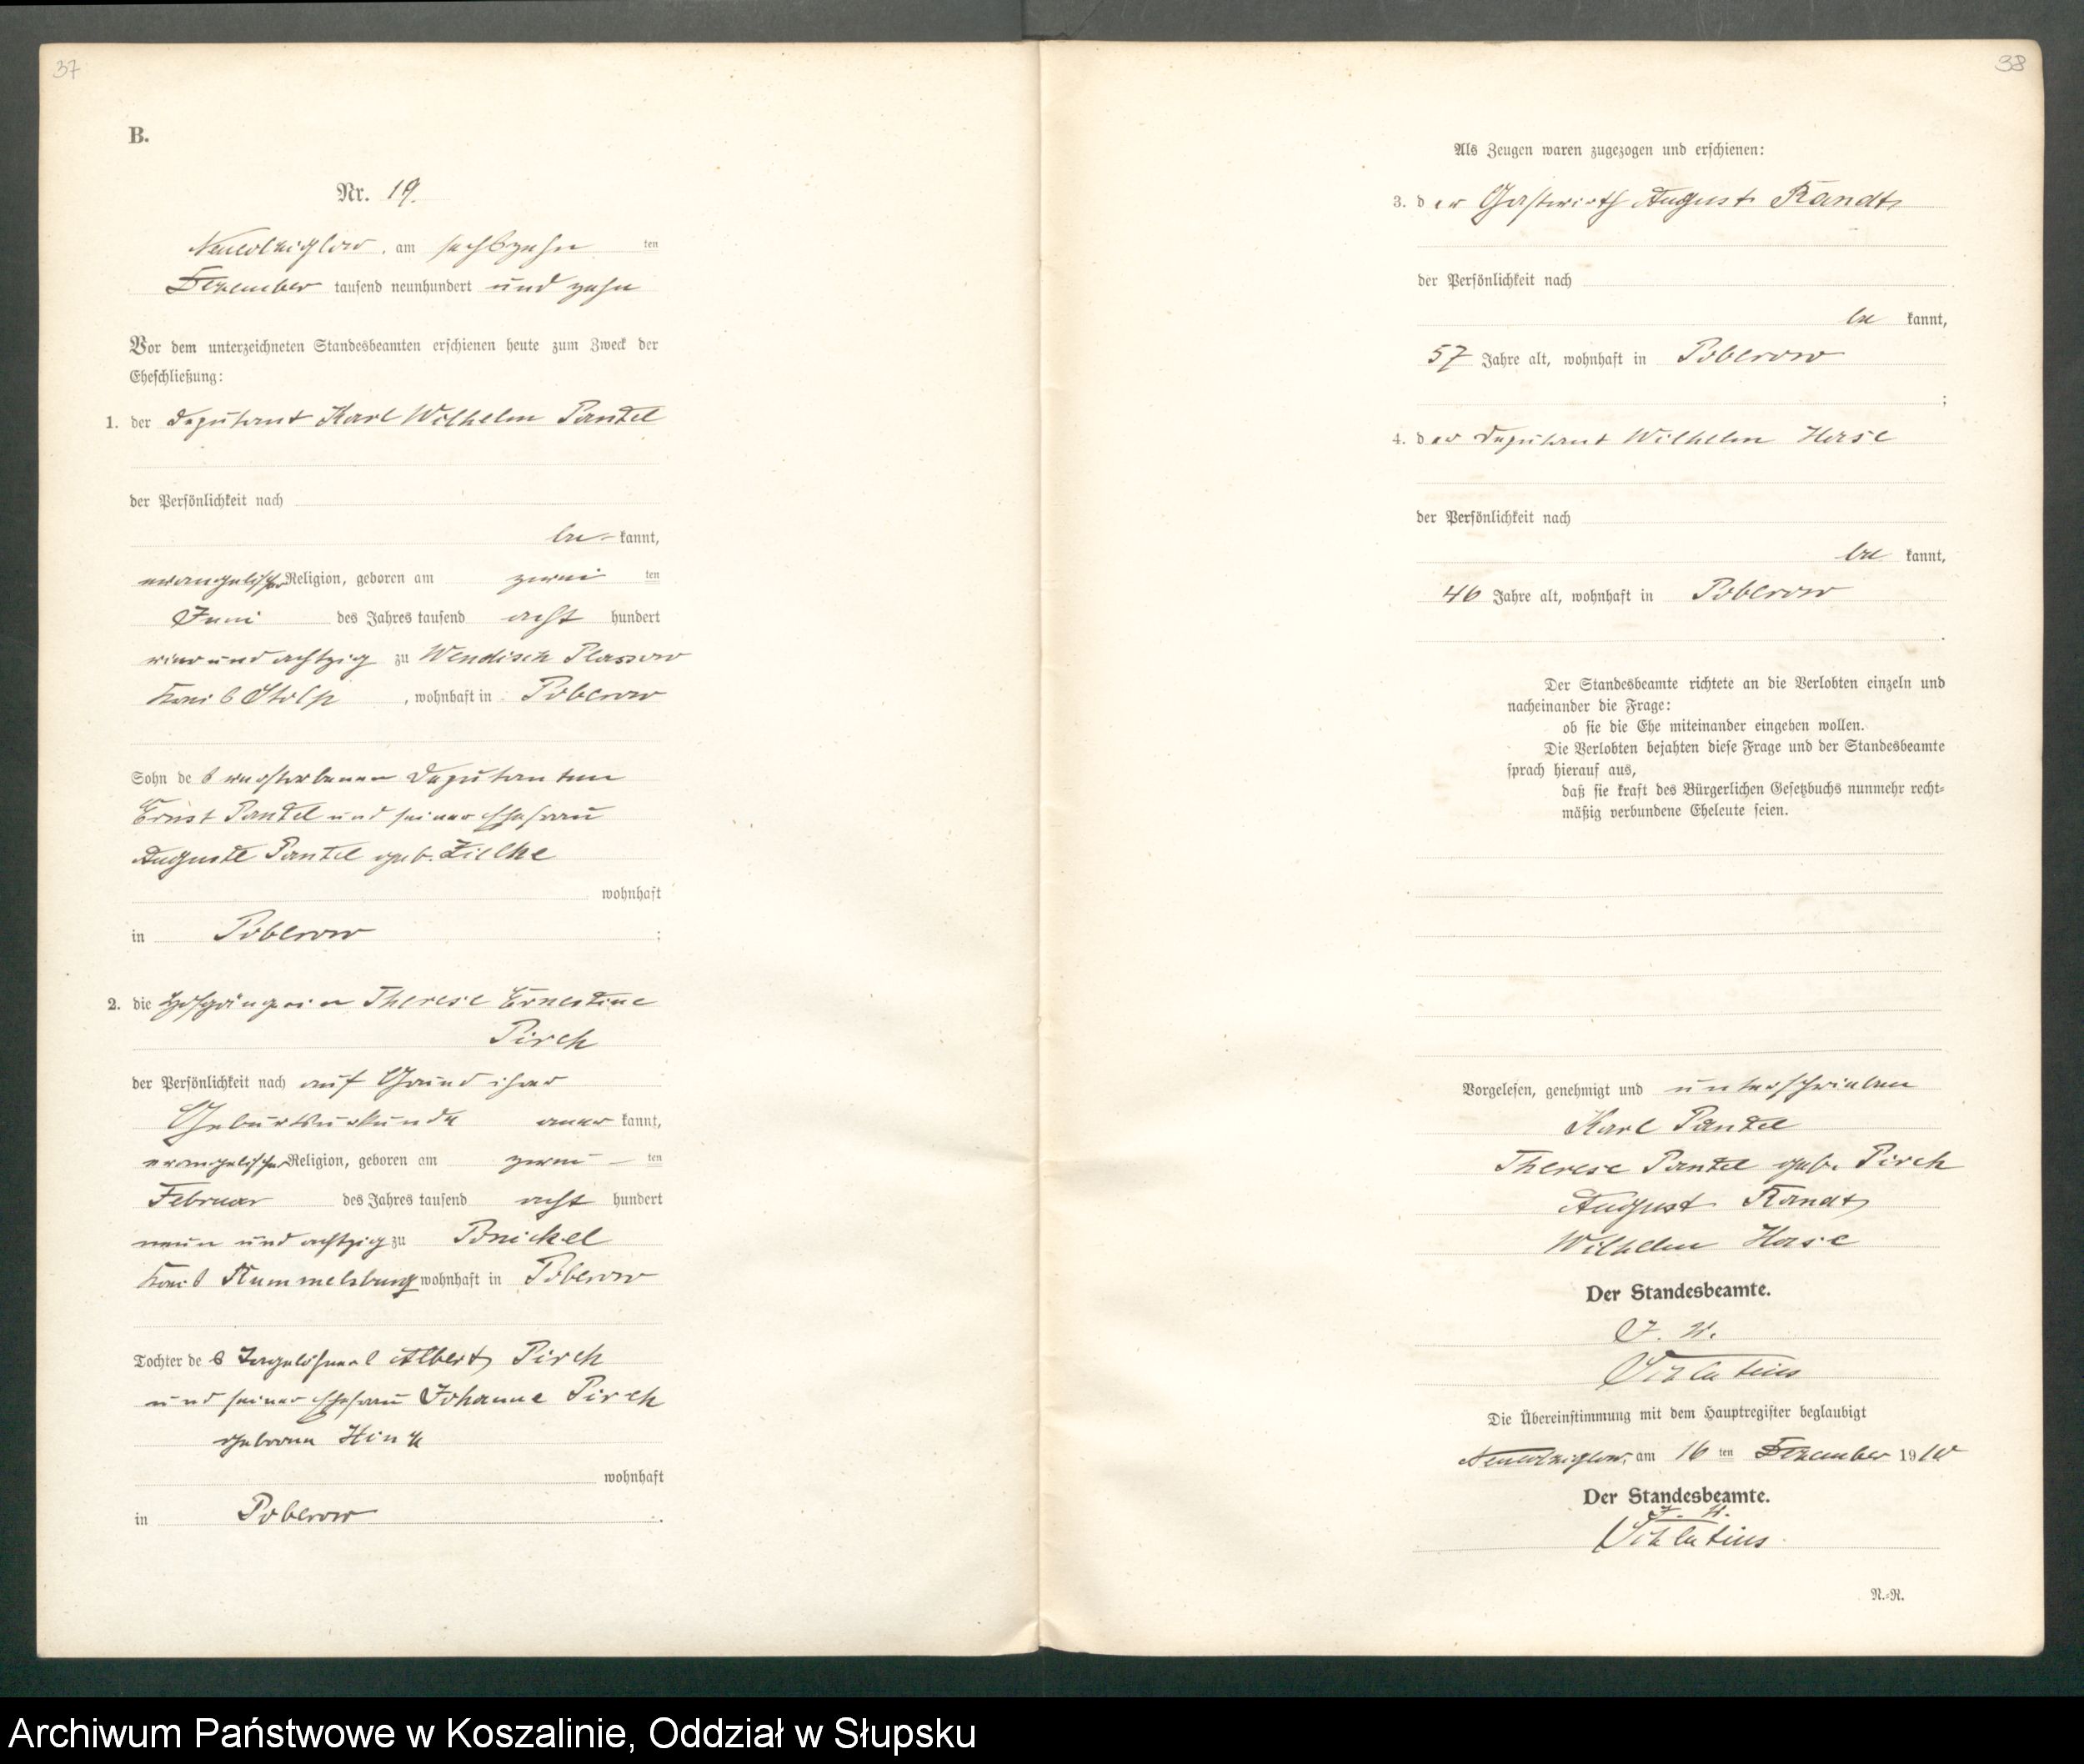 37
B.
Nr. 19.
am sechszehn ten
Dezember tausend neunhundert und zehn
Vor dem unterzeichneten Standesbeamten erschienen heute zum Zweck der
Eheschließung:
1. der Deputant Karl Wilhelm Pantel
der Persönlichkeit nach
be- kannt,
evangelischer Religion, geboren am zwei ten
Juni des Jahres tausend acht hundert
vier und achtzig zu Wendisch Plassow
Kreis Stolp, wohnhaft in Poberow
Sohn des verstorbenen Deputanten
Ernst Pantel und seiner Ehefrau
Auguste Pantel geb. Zielke
wohnhaft
in Poberow ;
2. die Hofgängerin Therese Ernestine
Pirch
der Persönlichkeit nach auf Grund ihrer
Geburtsurkunde aner kannt,
evangelischer Religion, geboren am zwei ten
Februar des Jahres tausend acht hundert
neun und achtzig zu Ponickel
Kreis Rummelsburg wohnhaft in Poberow
Tochter des Tagelöhners Albert Pirch
und seiner Ehefrau Johanne Pirch
geborene
wohnhaft
in Poberow .
38
Als Zeugen waren zugezogen und erschienen:
3. der Gastwirth August Randt
der Persönlichkeit nach
be kannt,
57 Jahre alt, wohnhaft in Poberow
;
4. der Deputant Wilhelm Hase
der Persönlichkeit nach
be kannt,
46 Jahre alt, wohnhaft in Poberow
.
Der Standesbeamte richtete an die Verlobten einzeln und
nacheinander die Frage:
ob sie die Ehe miteinander eingehen wollen.
Die Verlobten bejahten diese Frage und der Standesbeamte
sprach hierauf aus,
daß sie kraft des Bürgerlichen Gesetzbuchs nunmehr recht-
mäßig verbundene Eheleute seien.
Vorgelesen, genehmigt und unterschrieben
Karl Pantel
Therese Pantel geb. Pirch
August Randt
Wilhelm Hase
Der Standesbeamte.
J. V.
Die Übereinstimmung mit dem Hauptregister beglaubigt
am 16 ten Dezember 1910
Der Standesbeamte.
J. V.
N.-R.
Archiwum Państwowe w Koszalinie, Oddział w Słupsku